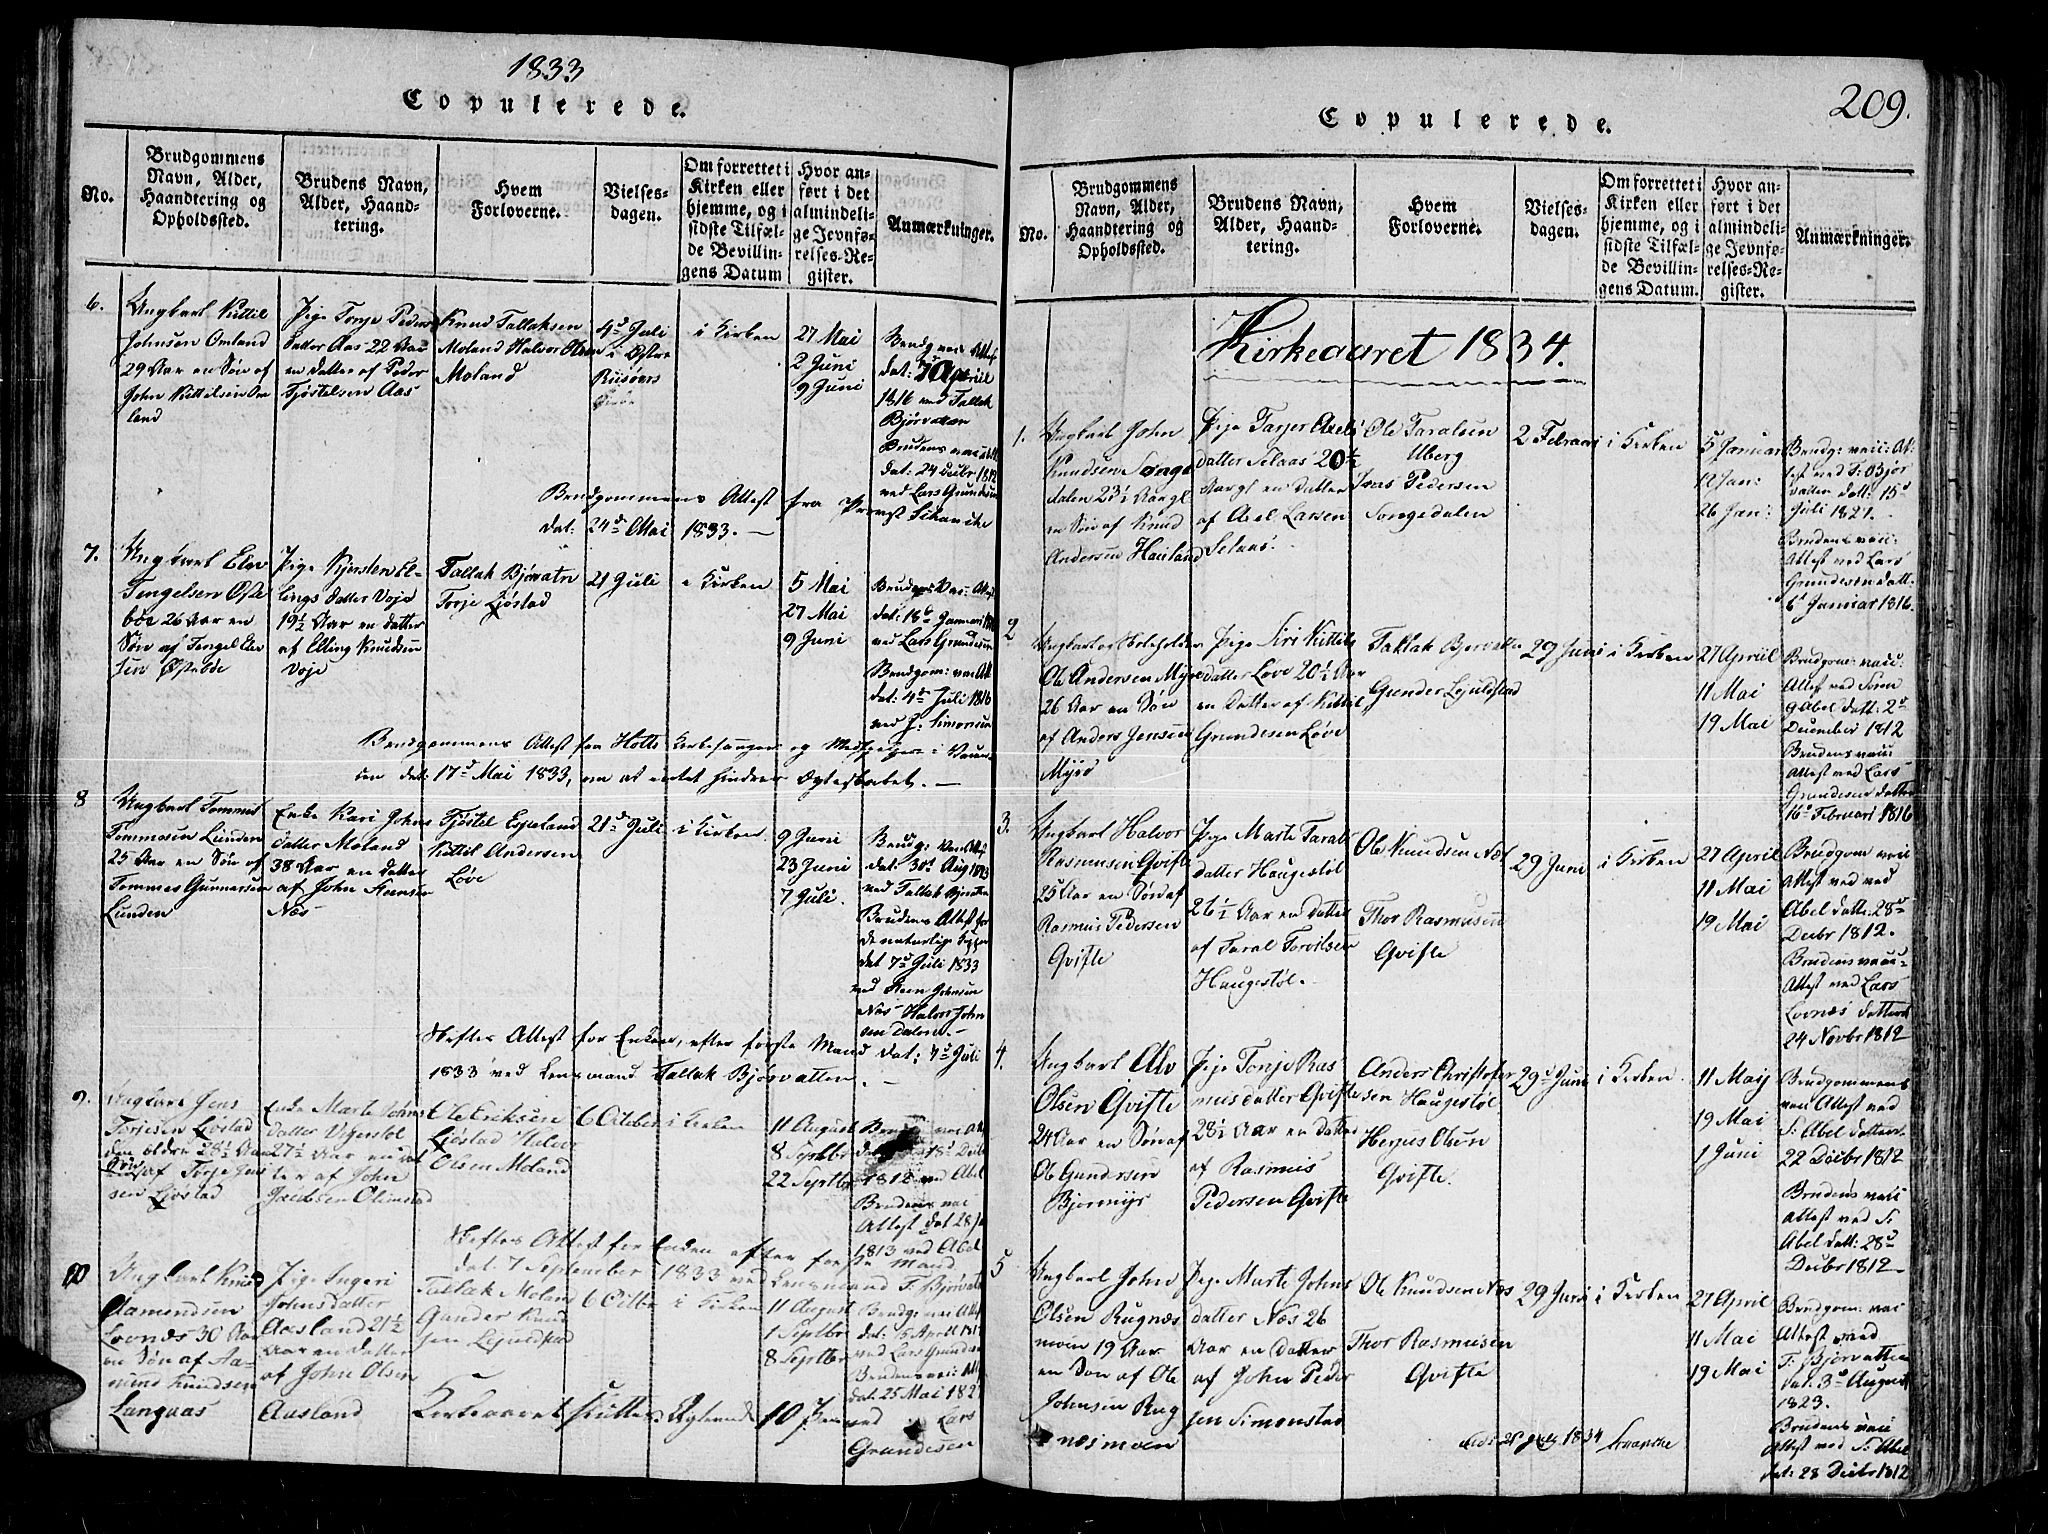 1833
Copulerede.
No.
Brudgommens
Navn, Alder,
Haandtering og
Opholdssted.
Brudens Navn,
Alder, Haand-
tering.
Hvem
Forloverne.
Vielses-
dagen.
Om forrettet i
Kirken eller
hjemme, og i
sidste Tilfæl-
de Bevillin-
gens Datum
Hvor an-
ført i det
almindeli-
ge Jevnfø-
relses-Re-
gister.
Anmærkninger.
6.
Ungkarl Kittil
Johnsen Omland
29 Aar en Søn af
John Kittilsen Om
land
Pige Tonje Peders
datter Aas 22 Aar
en datter af Peder
Tjøstelsen Aas
Knud Tallaksen
Moland Halvor Olsen
Moland
4d Juli
i Øster
Riisøers
i Kirken
27 Mai
2 Juni
9 Juni
Brudg: vac: Attest
dat: Apriil
1816 ved Tallak
Bjørvatten
Brudens vac: Att
dat: 24 Decbr 1812
ved Lars Grundesen
Brudgommens Attest fra Provst Schanche
dat: 24de Mai 1833.
7.
Ungkarl Elev
Tengelsen Øste
bøe 26 Aar en
Søn af Tengel Elev
sen Østebøe
Pige Kjersten El-
lings datter Voje
19½ Aar en datter
af Elling Knudsen
Voje
Tallak Bjørvatn
Torje Ljøstad
21 Juli
i Kirken
5 Mai
27 Mai
9 Juni
Brudens Vac: Attest
dat: 18de Januari
ved Lars Grundesen
Brudgom: vac: Att
dat: 4de Juli 1816
ved J. Simonsen
Brudgommens Attest fra Holts Kirkesanger og Medhjelpere
dat: 17de Mai 1833, om at intet hindrer Ægteskabet.
8
Ungkarl Tommes
Tommesen Lunden
25 Aar en Søn af
Tommes Gunnersen
Lunden
Enke Kari Johns
datter Moland
38 Aar en datter
af John Steensen
Næs
Tjøstel Espeland
Kittil Andersen
Løve
21d Juli
i Kirken
9 Juni
23 Juni
7 Juli.
Brudg: Vac: Attest
dat: 30d Aug 1823
ved Tallak Bjørvatten
Brudens Attest for
de naturlige Kopper
dat 7d Juli 1833
ved Steen Johnsen
Næs Halvor John
sen Dalene.
Skiftes Attest for Enken, efter første Mand dat: 4d Juli
1833 ved Lensmand Tallak Bjørvatten.
9.
Ungkarl Jens
Torjesen Ljøstad
den ældre 28½ Aar
Søn af Torje Jens
sen Ljøstad
Enke Marte Johns
datter Vigerstøl
27½ Aar en dat
ter af John
Jacobsen Olimstad
Ole Eriksen
Ljøstad Halvor
Olsen Moland
6 Octeber
i Kirken
11 August
8 Septbr
22 Septbr
Brudg: vac: Att
dat: 18d Decbr
1812 ved Abel
Brudens vac
Attest dat 28
1813 ved Abel
Skiftes Attest for Enken efter første Mand
dat: 7 September 1833 ved Lensmand T. Bjørvatn
10
Ungkarl Knud
Aamundsen
Lovnæs 30 Aar
en Søn af Aa-
mund Knudsen
Langaas
Pige Ingeri
Johnsdatter
Aasland 21½
Aar en datter
af John Olsen
Aasland
Tallak Moland
Gunder Knud
sen Lejuldstad
6 Octbr
i Kirken
11 August
1 Septbr
8 Septbr
Brudg: vac: Att
dat: 15 April
ved Lars Grundesen
Brudens vac: Att
dat: 25 Mai 182
ved Lars
Grundesen
Kirkeaaret sluttes Ægteviede 10 Par
209.
Copulerede.
No.
Brudgommens
Navn, Alder,
Haandtering og
Opholdssted.
Brudens Navn,
Alder, Haand-
tering.
Hvem
Forloverne.
Vielses-
dagen.
Om forrettet i
Kirken eller
hjemme, og i
sidste Tilfæl-
de Bevillin-
gens Datum.
Hvor an-
ført i det
almindeli-
ge Jevnfø-
relses-Re-
gister.
Anmærkninger.
Kirkeaaret 1834.
1.
Ungkarl John
Knudsen Songe
dalen 23½ Aargl
en Søn af Knud
Andersen Hauland
Pige Tarjer Axels
datter Selaas 20½
Aargl en datter
af Axel Larsen
Selaas.
Ole Taralsen
Uberg
Ivas Pedersen
Songedalen
2 Februari
i Kirken
5 Januar
12 Jan:
26 Jan:
Brudg: vac: At:
test ved T: Bjør
vatten datt: 15d
Juli 1827.
Brudens vac:
Attest ved Lars
Grundesen datt:
6d Januar 1816.
2
Ungkarl og Skoleholder
Ole Andersen Myre
26 Aar en Søn
af Anders Jensen
Myre
Pige Siri Kittils
datter Løve 20½ Aar
en Datter af Kittil
Grundesen Løve
Tallak Bjorvatten
Gunder Lejuldstad
29 Juni
i Kirken
27 Apriil
11 Mai
19 Mai
Brudgom: vac:
Attest ved Søren
Abel datt: 2d
December 1812
Brudens vac:
Attest ved Lars
Grundesen datter
16d Februari 1816
3.
Ungkarl Halvor
Rasmusen Qvifte
25 Aar en Søn af
Rasmus Pedersen
Qvifte
Pige Marte Tarals
datter Haugestøl
26½ Aar en datter
af Taral Torvilsen
Haugestøl.
Ole Knudsen Næs
Thor Rasmusen
Qvifte
29 Juni
i Kirken
27 April
11 Mai
19 Mai
Brudgom vac
Attest ved ved
Abel datt: 28d
Decbr 1812.
Brudens vac:
Attest ved Lars
Lovnæs datteret
24 Novbr 1812
4.
Ungkarl Alv
Olsen Qvifte
24 Aar en Søn af
Ole Gundersen
Bjørmyr
Pige Tonje Ras
musdatter Qvifte
28½ Aar en datter
af Rasmus
Pedersen Qvifte
Anders Christofer
sen Haugestøl
Herjus Olsen
Qvifte.
29d Juni
i Kirken.
11 Maij
19 Mai
1 Juni
Brudgommens
vac Attest ved
S: Abel datteret
22 Decbr 1812
Brudens vac
Attest ved S:
Abel datt: 28d
Decbr 1812
5
Ungkarl John
Olsen Rugnæs
moen 19 Aar
en Søn af Ole
Johnsen Rug
næsmoen
Pige Marte Johns
datter Næs 26
Aar en datter
af John Peder
sen Simonstad
Ole Knudsen Næs
Thor Rasmusen
Qvifte
29 Juni
i Kirken
27 April
11 Mai
19 Mai
Brudgom: vac
Attest ved
T: Bjørvatten
dat: 3d August
1823.
Brudens vac:
Attest ved S: Abel
dat: 28 Decbr 1812
1834 Schanche